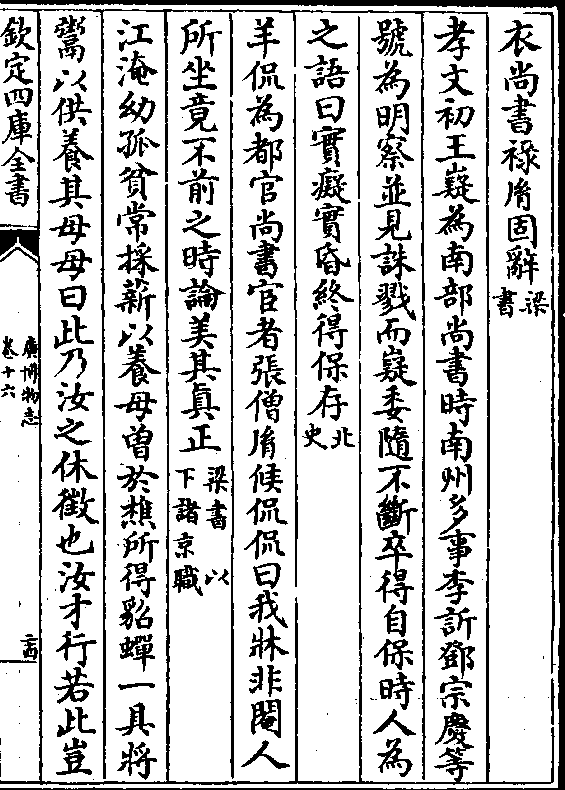 衣尚書祿胤固辭梁書
孝文初王嶷為南部尚書時南州多事李訢鄧宗慶等
號為明察並見誅戮而嶷委隨不斷卒得自保時人為
之語曰實癡實昏終得保存北史
羊侃為都官尚書宦者張僧胤候侃侃曰我牀非閹人
所坐竟不前之時論美其眞正梁書以下諸京職
江淹幼孤貧常採薪以養母曾於樵所得貂蟬一具將
鬻以供養其母母曰此乃汝之休徵也汝才行若此豈
欽定四庫全書
廣博物志
卷十六